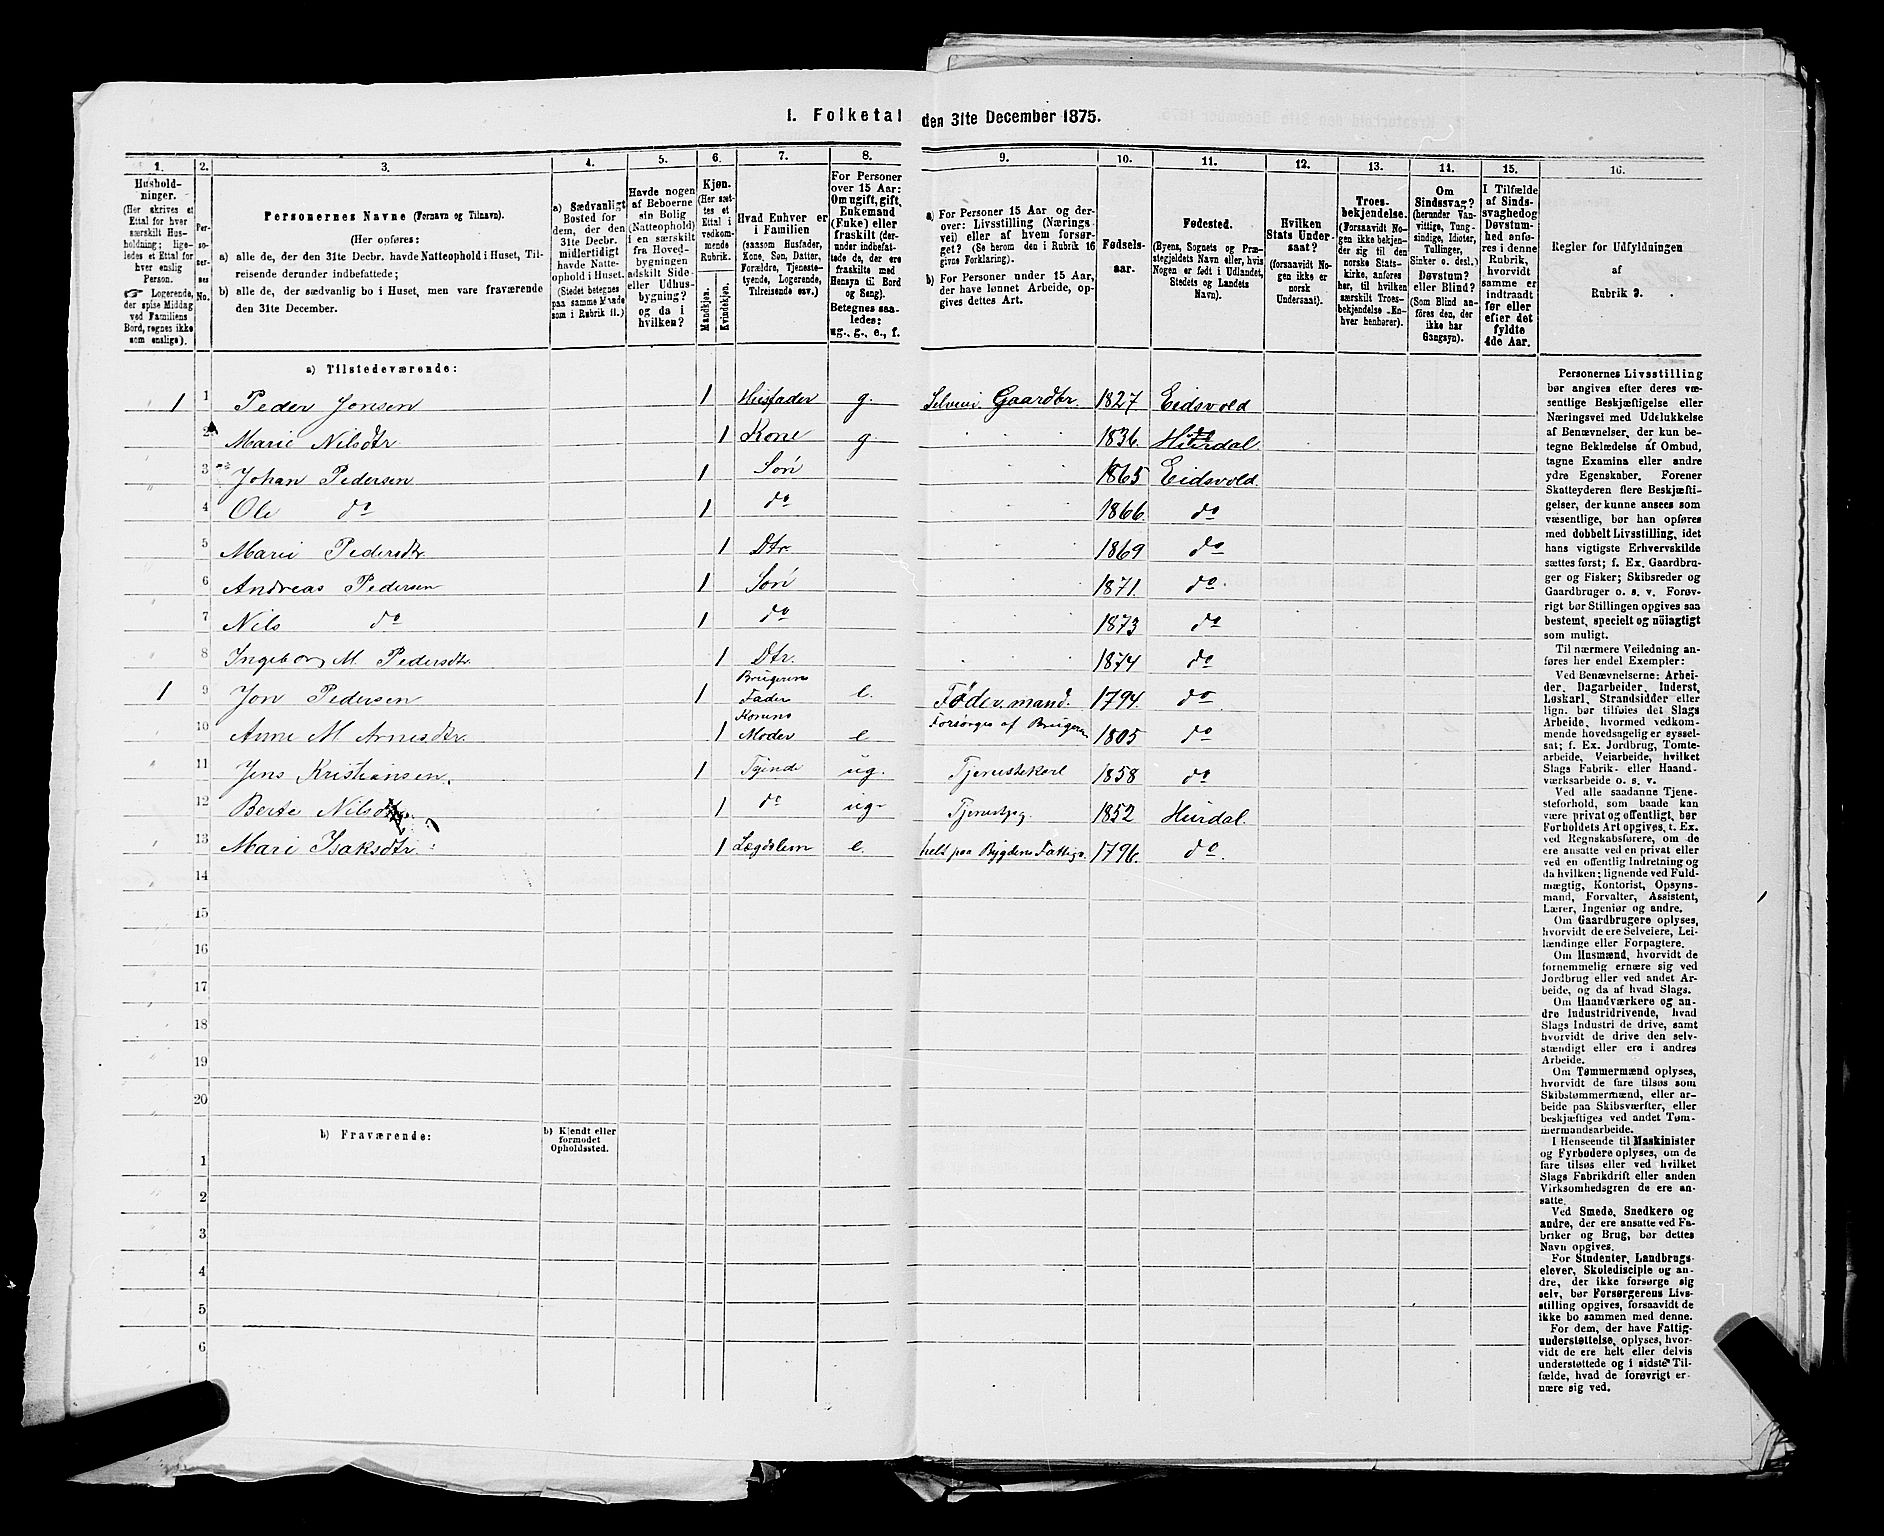 I. Folketal den 31te December 1875.
1. 2. 3. 4. 5. 6. 7. 8. 9. 10. 11. 12. 13. 14. 15. 16.
Hushold-
ninger.
(Her skrives et
Ettal for hver
særskilt Hus-
holdning; lige-
ledes et Ettal for
hver enslig
Person.
☞ Logerende,
der spise Middag
ved Familiens
Bord, regnes ikke
som enslige).
Per-
so-
ner-
nes
No.
Personernes Navne (Fornavn og Tilnavn).
(Her opføres:
a) alle de, der den 31te Decbr. havde Natteophold i Huset, Til-
reisende derunder indbefattede;
b) alle de, der sædvanlig bo i Huset, men vare fraværende
den 31te December.
a) Sædvanligt
Bosted for
dem, der den
31te Decbr.
midlertidigt
havde Natte-
ophold i Huset.
(Stedet betegnes
paa samme Maade
som i Rubrik 11.)
Havde nogen
af Beboerne
sin Bolig
(Natteophold)
i en særskilt
fra Hoved-
bygningen
adskilt Side-
eller Udhus-
bygning?
og da i
hvilken?
Kjøn.
(Her sæt-
tes et
Ettal i
vedkom-
mende
Rubrik.
Mandkjøn.
Kvindekjøn.
Hvad Enhver er
i Familien
(saasom Husfader,
Kone, Søn, Datter,
Forældre, Tjeneste-
tyende, Logerende,
Tilreisende osv.)
For Personer
over 15 Aar:
Om ugift, gift,
Enkemand
(Enke) eller
fraskilt (der-
under indbefat-
tede de, der ere
fraskilte med
Hensyn til Bord
og Seng).
Betegnes saa-
ledes:
ug., g., e., f.
a) For Personer 15 Aar og der-
over: Livsstilling (Nærings-
vei) eller af hvem forsør-
get? (Se herom den i Rubrik 16
givne Forklaring).
b) For Personer under 15 Aar,
der have lønnet Arbeide, op-
gives dettes Art.
Fødsels-
aar.
Fødested.
(Byens, Sognets og Præ-
stegjeldets Navn eller, hvis
Nogen er født i Udlandet,
Stedets og Landets
Navn).
Hvilken
Stats Under-
saat?
(forsaavidt No-
gen ikke er
norsk
Undersaat).
Troes-
bekjendelse.
(Forsaavidt No-
gen ikke bekjen-
der sig til den
norske Stats-
kirke, anføres
her, til hvilken
særskilt Troes-
bekjendelse En-
hver henhører).
Om
Sindssvag?
(herunder Van-
vittige, Tung-
sindige, Idioter,
Tullinger,
Sinker o. desl.)
Døvstum?
eller Blind?
(Som Blind an-
føres den, der
ikke har
Gangsyn).
I Tilfælde
af Sinds-
svaghed og
Døvstum-
hed anfø-
res i denne
Rubrik,
hvorvidt
samme er
indtraadt
før eller
efter det
fyldte
4de Aar.
Regler for Udfyldningen
af
Rubrik 9.
a) Tilstedeværende:
1 1 Peder Jonsen 1 Husfader g. Selveier Gaardbr. 1827 Eidsvold
2 Marie Nilsdtr 1 Kone g 1836. Hurdal
3 Johan Pedersen 1 Søn 1865 Eidsvold
4 Ole do 1 do 1866. do
5 Marie Pedersdtr. 1 Dtr. 1869 do
6 Andreas Pedersen 1 Søn 1871. do.
7 Nils do 1 do 1873 do
8 Ingeborg M. Pedersdtr. 1 Dtr. 1874 do
1 9 Jon Pedersen 1 Brugerens Fader e. Födermand. 1794. do
10 Anne M. Arnesdtr. 1 Konens Moder e Forsörges af Brugeren 1805 do
11 Jens Kristiansen. 1 Tyende ug. Tjenestekarl 1858 do
12 Berte Nilsdtr. 1 do ug. Tjenestpg 1852 Hurdal.
13 Mari Isaksdtr. 1 Lægdslem e. helt paa Bygdens Fattigv. 1796. do.
14
15
16
17
18
19
20
b) Fraværende:
b) Kjendt eller
formodet
Opholdssted.
1
2
3
4
5
6
Personernes Livsstilling
bør angives efter deres væ-
sentlige Beskjæftigelse eller
Næringsvei med Udelukkelse
af Benævnelser, der kun be-
tegne Beklædelse af Ombud,
tagne Examina eller andre
ydre Egenskaber. Forener
Skatteyderen flere Beskjæfti-
gelser, der kunne ansees som
væsentlige, bør han opføres
med dobbelt Livsstilling, idet
hans vigtigste Erhvervskilde
sættes først; f. Ex. Gaardbru-
ger og Fisker; Skibsreder og
Gaardbruger o. s. v. Forøv-
rigt bør Stillingen opgives saa
bestemt, specielt og nöiagtigt
som muligt.
Til nærmere Veiledning an-
føres her endel Exempler:
Ved Benævnelserne: Arbei-
der, Dagarbeider, Inderst,
Løskarl, Strandsidder eller
lign. bør tilføies det Slags
Arbeide, hvormed vedkom-
mende hovedsagelig er syssel-
sat; f. Ex. Jordbrug, Tomte-
arbeide, Veiarbeide, hvilket
Slags Fabrik- eller Haand-
værksarbeide o. s. v.
Ved alle saadanne Tjene-
steforhold, som baade kan
være privat og offentligt, bør
Forholdets Art opgives, t. Ex.
ved Regnskabsførere, om de
ere ansatte ved en privat eller
ved en offentlig Indretning og
da hvilken; lignende ved Fuld-
mægtig, Kontorist, Opsyns-
mand, Forvalter, Assistent,
Lærer, Ingeniør og andre.
Om Gaardbrugere oplyses,
hvorvidt de ere Selveiere, Lei-
lændinge eller Forpagtere.
Om Husmænd, hvorvidt de
fornemmelig ernære sig ved
Jordbrug eller ved andet Ar-
beide, og da af hvad Slags.
Om Haandværkere og an-
dre Industridrivende, hvad
Slags Industri de drive, samt
hvorvidt de drive den selv-
stændigt eller ere i andres
Arbeide.
Om Tømmermænd oplyses,
hvorvidt de fare tilsøs som
Skibstømmermænd, eller ar-
beide paa Skibsværfter, eller
beskjæftiges ved andet Tøm-
mermandsarbeide.
I Henseende til Maskinister
og Fyrbødere oplyses, om de
fare tilsøs eller ved hvilket
Slags Fabrikdrift eller anden
Virksomhedsgren de ere an-
satte.
Ved Smede, Snedkere og
andre, der ere ansatte ved Fa-
briker og Brug, bør dettes
Navn opgives.
For Studenter, Landbrugs-
elever, Skoledisciple og an-
dre, der ikke forsørge sig
selv, bør Forsørgerens Livs-
stilling opgives, forsaavidt de
ikke bo sammen med denne.
For dem, der have Fattig-
understøttelse, oplyses, hvor-
vidt de ere helt eller delvis
understøttede og i sidste Til-
fælde, hvad de forøvrigt er-
nære sig ved.